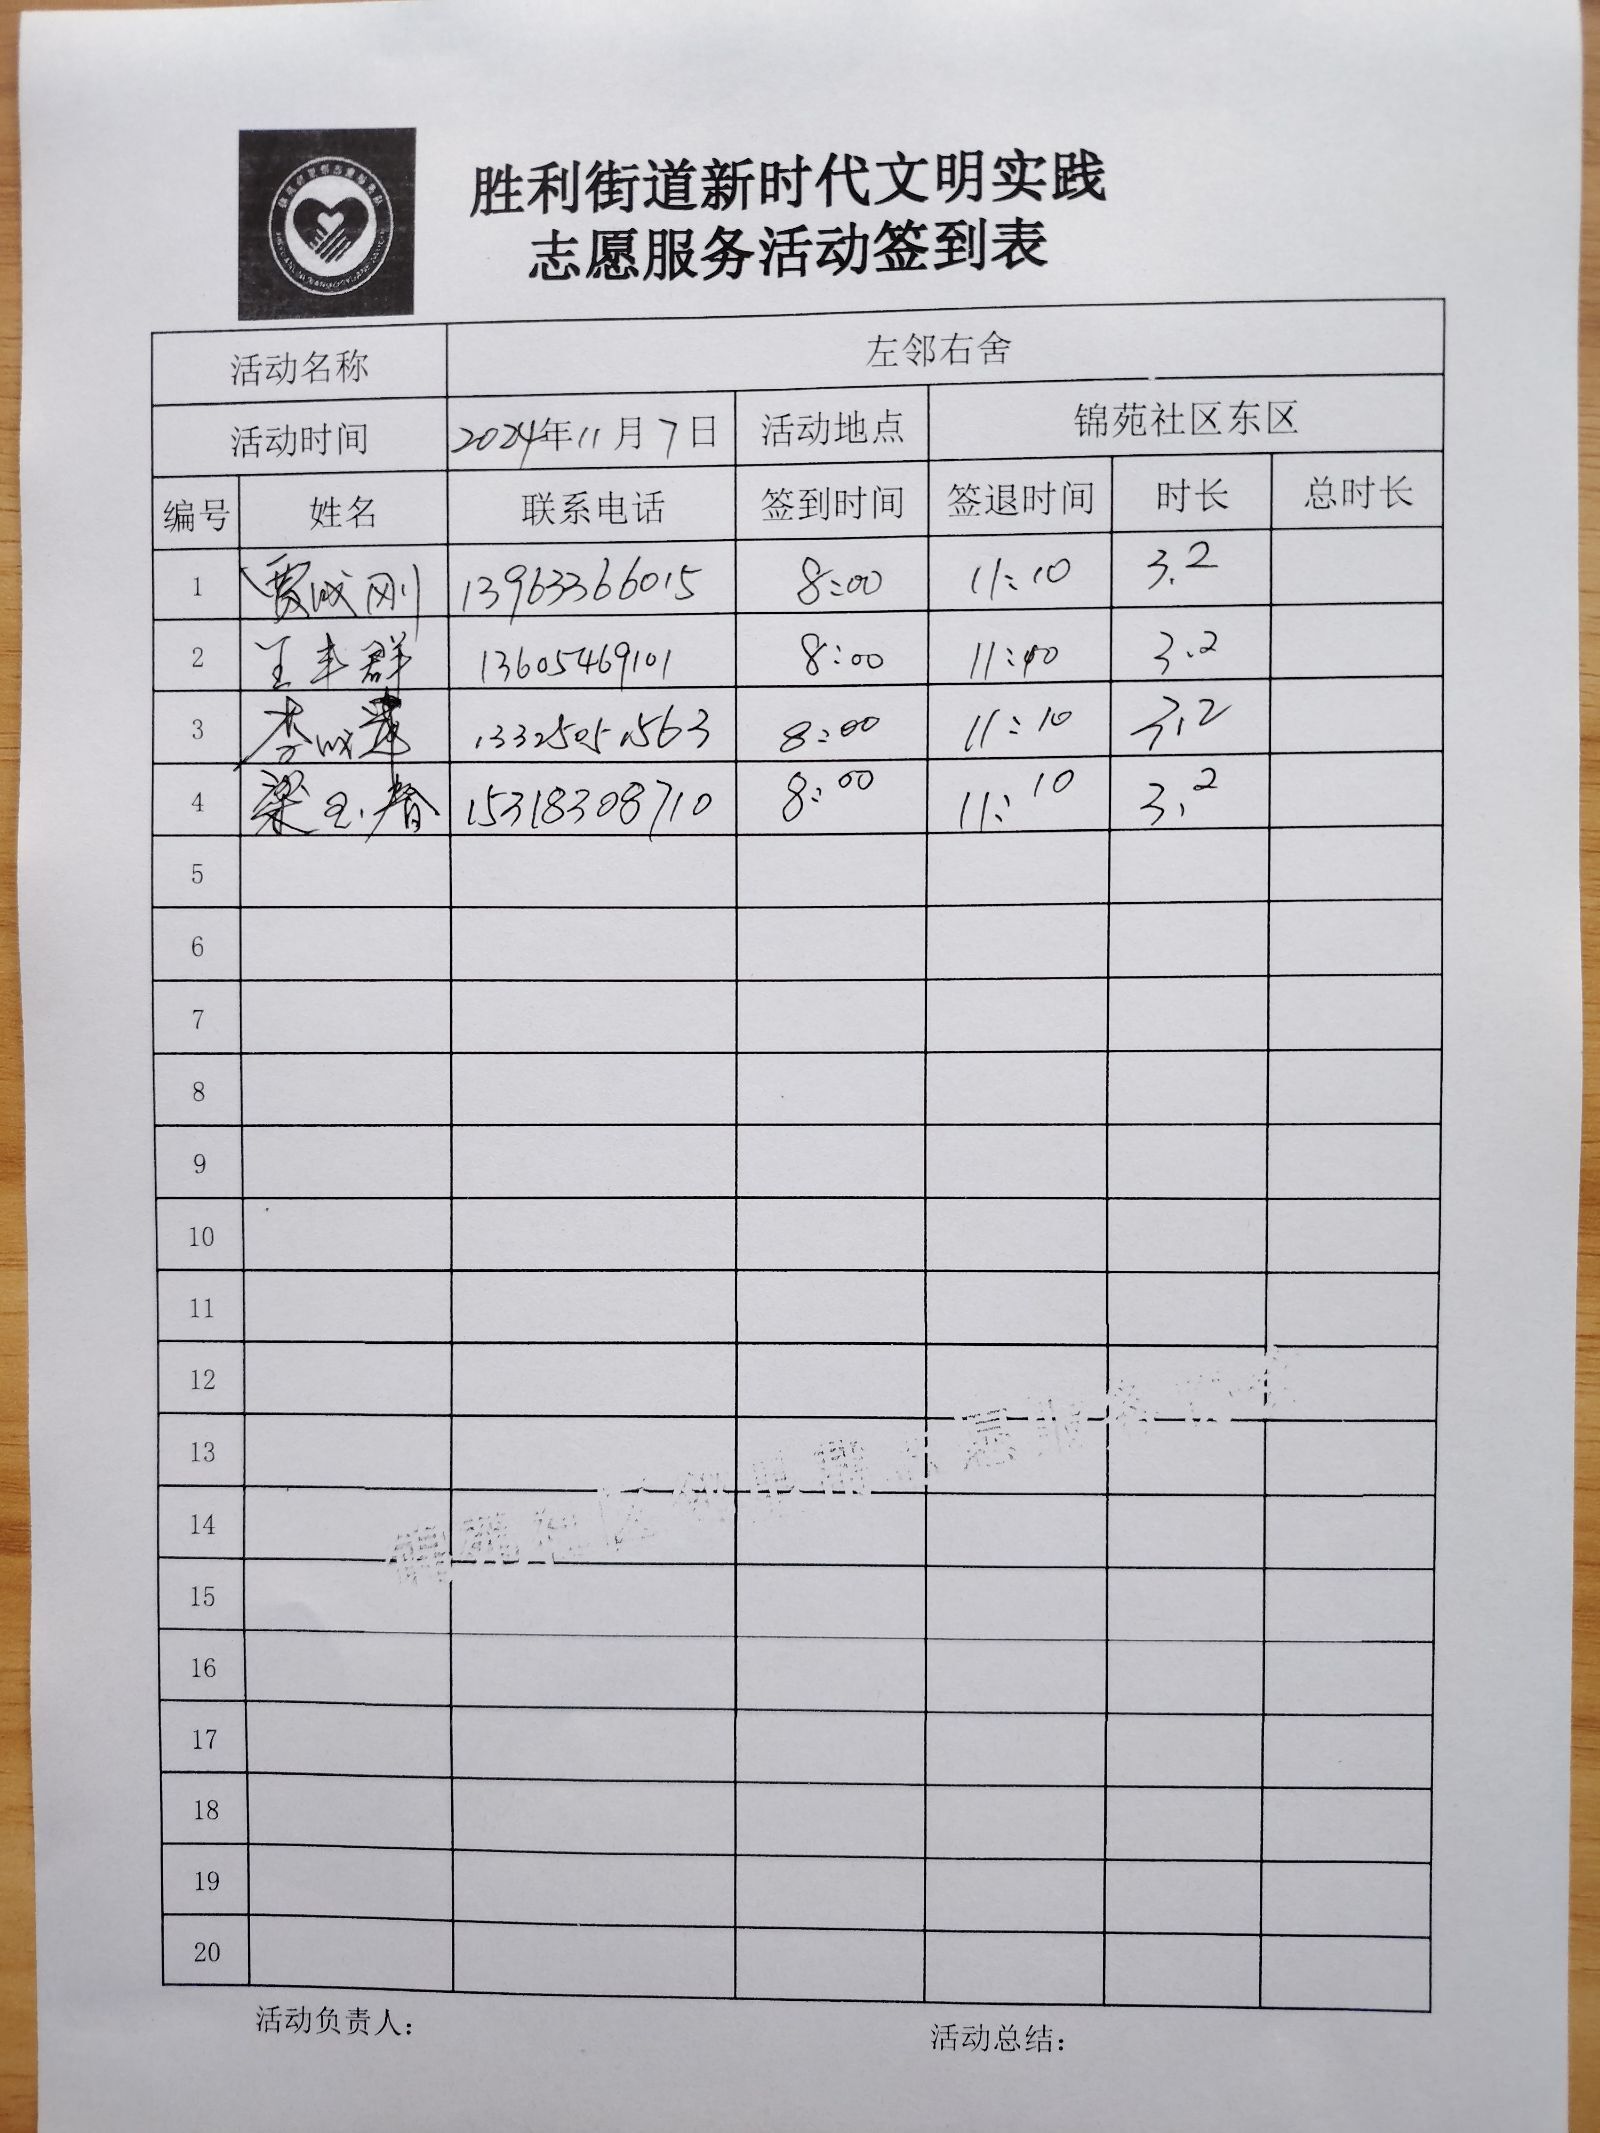 胜利街道新时代文明实践
志愿服务活动签到表
活动名称 左邻右舍
活动时间 2024年11月7日 活动地点 锦苑社区东区
编号 姓名 联系电话 签到时间 签退时间 时长 总时长
1 贾成刚 13963366015 8:00 11:10 3.2
2 王丰群 13605469101 8:00 11:10 3.2
3 李成莲 13325051563 8:00 11:10 3.2
4 梁玉春 15318308710 8:00 11:10 3.2
5
6
7
8
9
10
11
12
13
14
15
16
17
18
19
20
活动负责人：
活动总结：